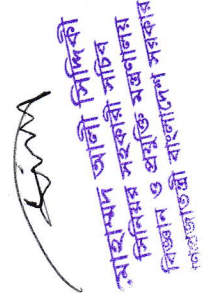 মোহাম্মদ আলী সিদ্দিকী
সিনিয়র সহকারী সচিব
বিজ্ঞান ও প্রযুক্তি মন্ত্রণালয়
গণপ্রজাতন্ত্রী বাংলাদেশ সরকার